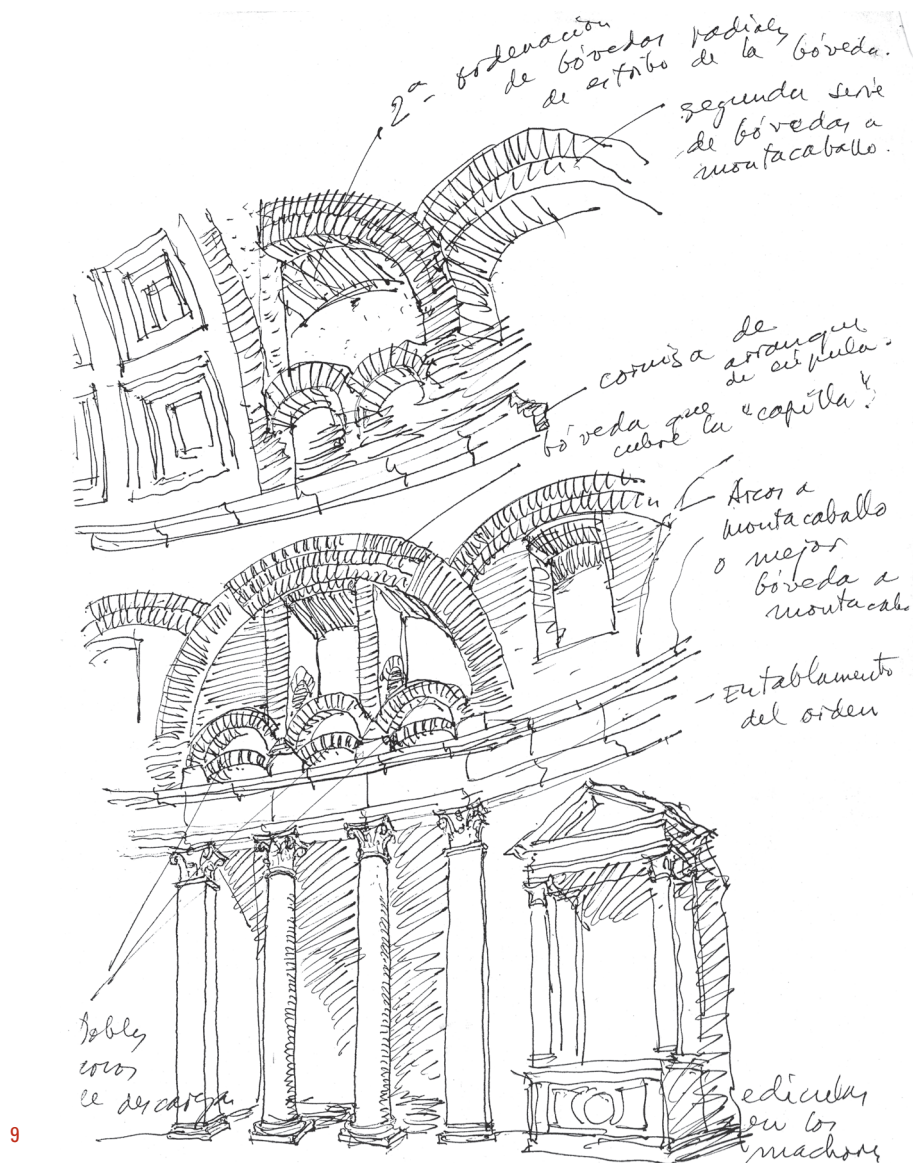 2ª ordenación
de bóvedas radiales
de estribo de la bóveda.
segunda serie
de bóvedas a
montacaballo.
cornisa de
arranque
de cúpula.
bóveda que
cubre la "capilla".
Arcos a
montacaballo
o mejor
bóveda a
montacaba
Entablamento
del orden
Dobles
arcos
de descarga
ediculas
en los
machones
9